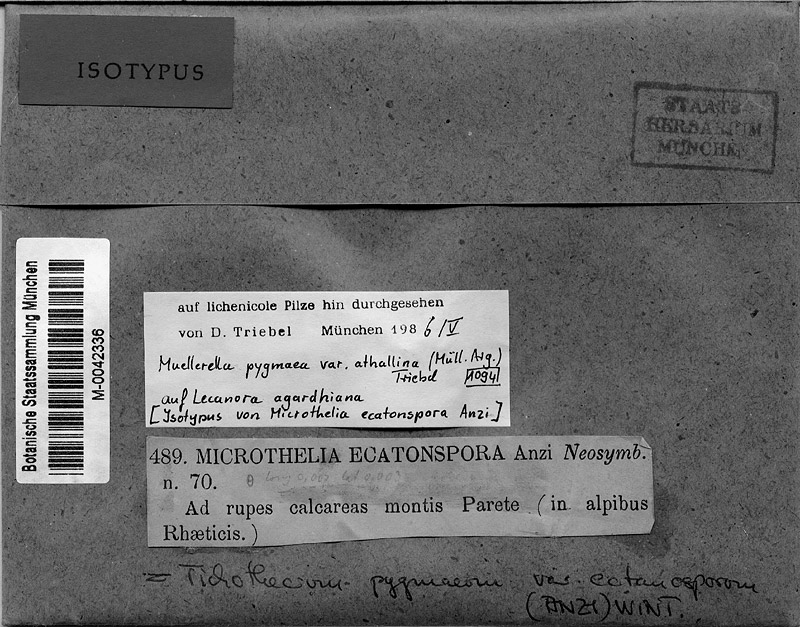 ISOTYPUS
STAATS
HERBARIUM
MÜNCHEN
Botanische Staatssammlung München
M-0042336
auf lichenicole Pilze hin durchgesehen
von D. Triebel München 198 6/V
Muellerella pygmaea var. athallina (Müll. Arg.)
Triebel 1094
auf Lecanora agardhiana
[Isotypus von Microthelia ecatonspora Anzi]
489. MICROTHELIA ECATONSPORA Anzi Neosymb.
n. 70. long 0,007 lat 0,003
Ad rupes calcareas montis Parete (in alpibus
Rhæticis.)
= Tichothecium pygmaeum var. ecatonsporum
(ANZI) WINT.